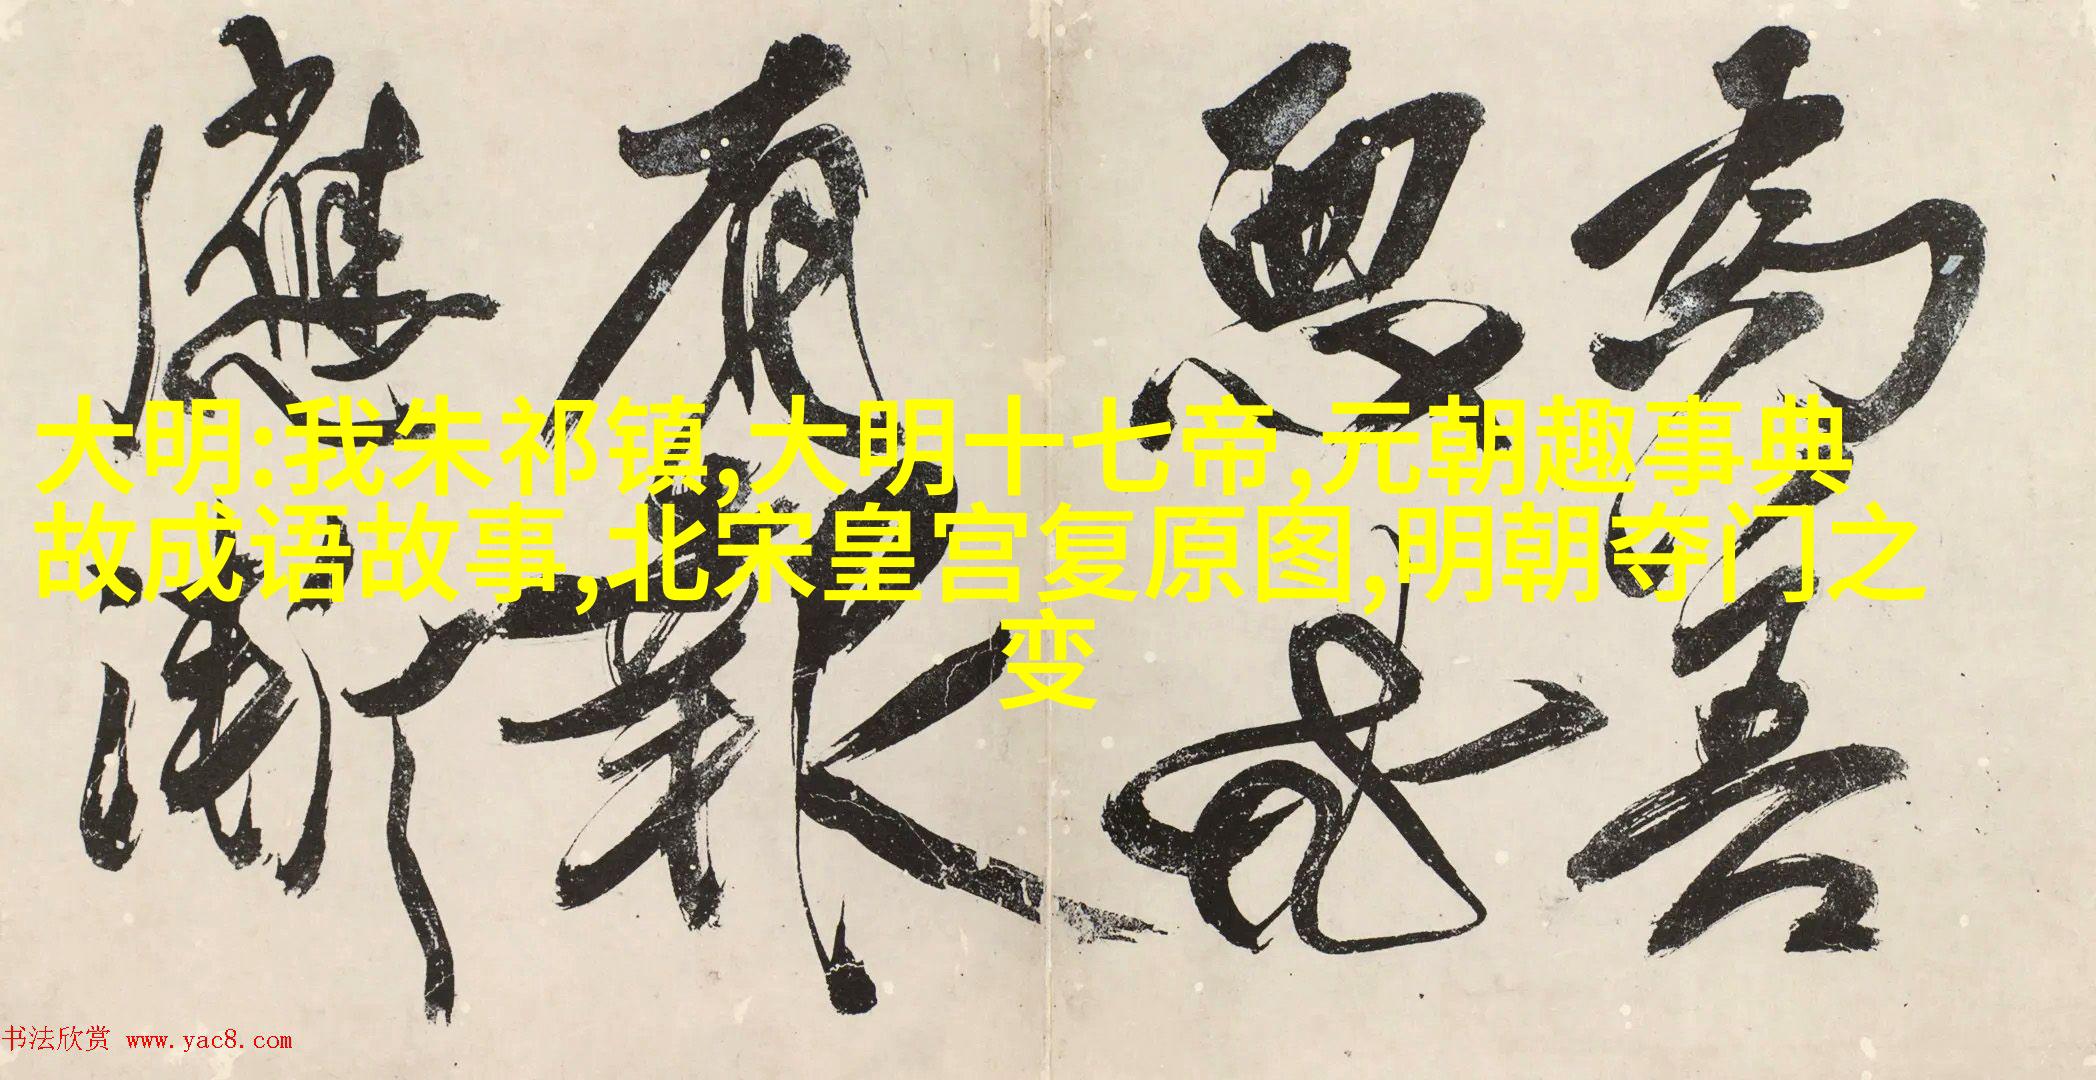 為善
惡或
有報
應漸
大明:我朱祁镇,大明十七帝,元朝趣事典
故成语故事,北宋皇宫复原图,明朝夺门之
变
书法欣赏 www.yac8.com